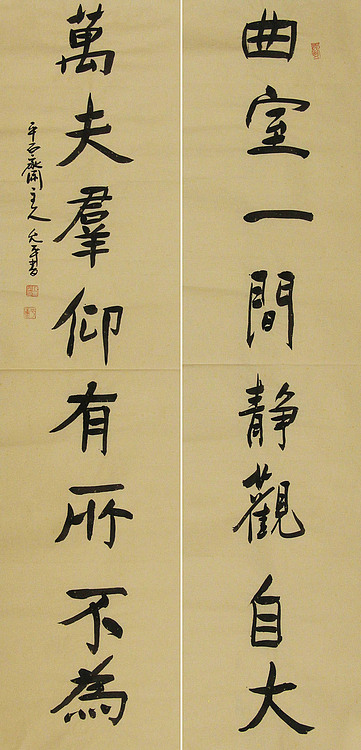 曲室一間静觀自大
萬夫羣仰有所不為
主人
書